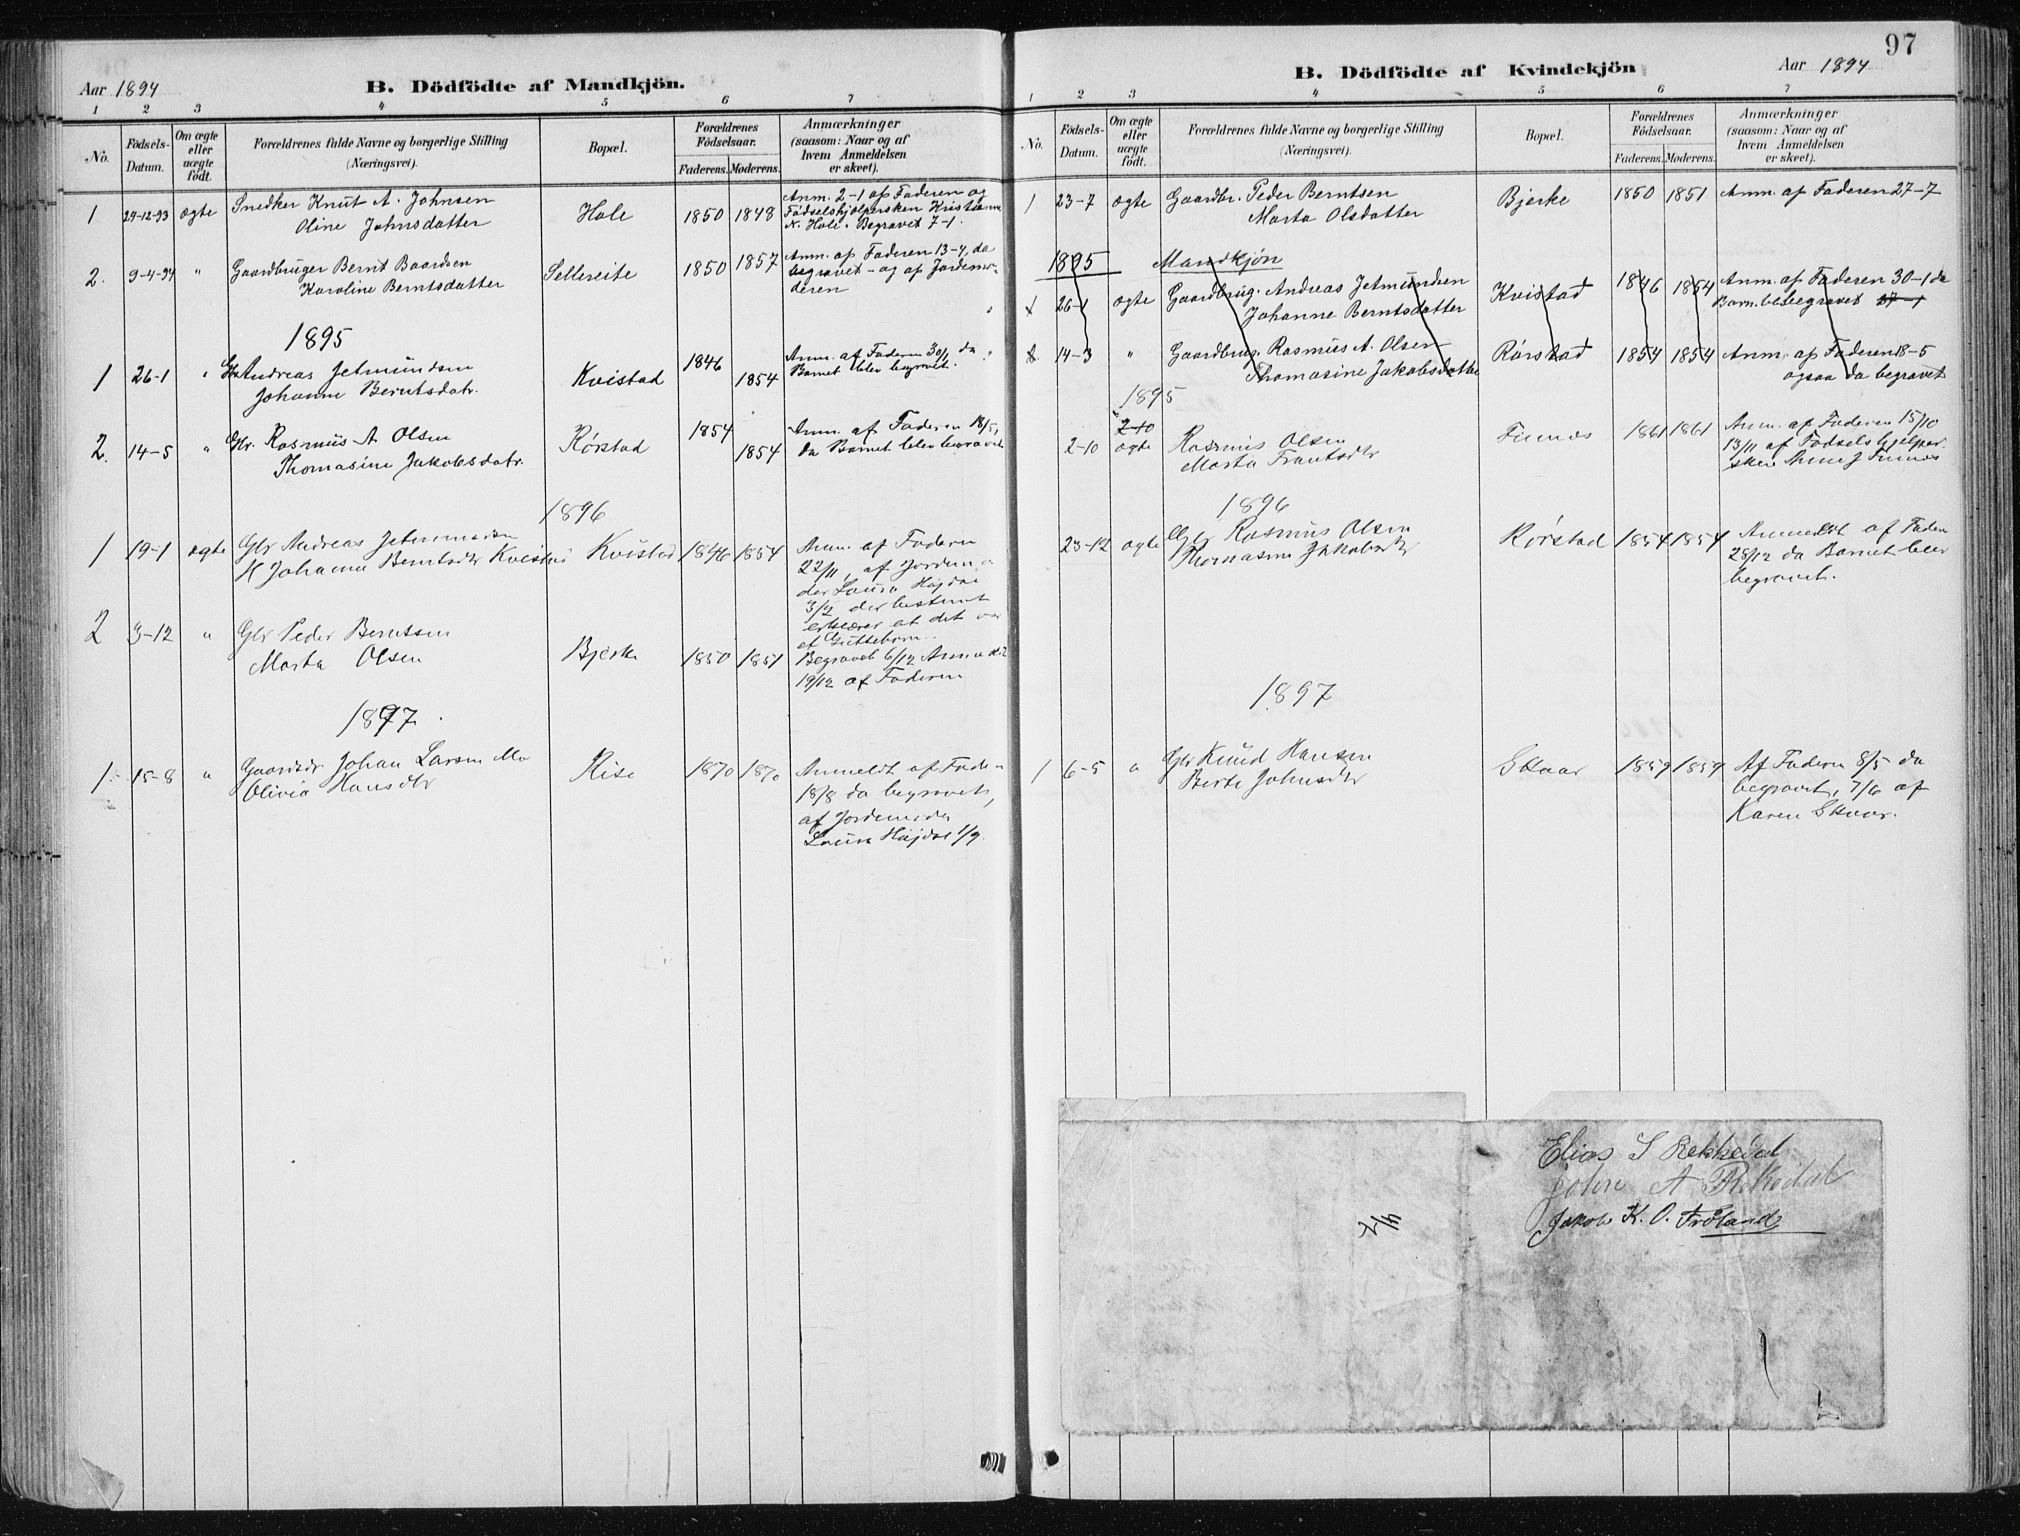 Aar 1894
B. Dödfödte af Mandkjön.
1 2 3 4 5 6 7
No.
Födsels-Datum.
Om ægte eller uægte födt.
Forældrenes fulde Navne og borgerlige Stilling (Næringsvei).
Bopæl.
Forældrenes Födselsaar.
Faderens. Moderens.
Anmærkninger (saasom: Naar og af hvem Anmeldelsen er skeet).
1 29-12-93 ægte Snedker Knut A. Johnsen Hole 1850 1848 Anm. 2-1 af Faderen og
Oline Johnsdatter Fødselshjælpersken Kristianna
N. Hole. Begravet 7-1.
2. 9-4-94 " Gaardbruger Bernt Baardsen Sellereite 1850 1857 Anm. af Faderen 13-4, da
Karoline Berntsdatter begravet - og af Jordemo-
deren
1895
1 26-1 " Gbr Andreas Jetmundsen Kvistad 1846 1854 Anm. af Faderen 30/1 da
Johanne Berntsdatr. Barnet blev begravet.
2. 14-5 " Gbr. Rasmus A Olsen Rørstad 1854 1854 Anm. af Faderen 18/5,
Thomasine Jakobsdatr. da Barnet blev begravet
1896
1 19-1 ægte Gbr Andreas Jetmundsen Kvistad 1846 1854 Anm. af Faderen
Johanne Berntsdtr Kvistad 22/11, af Jordemo-
der Laura Højdal
3/2 der bestemt
erklærer at det var
et Guttebarn.
2 3-12 " Gbr Peder Berntsen
Marta Olsen Bjerke 1850 1851 Begravet 6/12 Anmeldt
19/12 af Faderen
1897
1 15-8 " Gaardbr Johan Larsen Mo Rise 1870 1870 Anmeldt af Fader
Olivia Hansdtr 18/8 da begravet,
af Jordemoder
Laura Højdal 1/9.
97
Aar 1894
B. Dödfödte af Kvindekjön
1 2 3 4 5 6 7
No.
Födsels-Datum.
Om ægte eller uægte födt.
Forældrenes fulde Navne og borgerlige Stilling (Næringsvei).
Bopæl.
Forældrenes Födselsaar.
Faderens. Moderens.
Anmærkninger (saasom: Naar og af hvem Anmeldelsen er skeet).
1 23-7 ægte Gaardbr. Peder Berntsen Bjerke 1850 1851 Anm. af Faderen 27-7
Marta Olsdatter
1895 Mandkjøn
1 26-1 ægte Gaardbrug. Andreas Jetmundsen Kvistad 1846 1854 Anm. af Faderen 30-1 da
Johanne Berntsdatter Barn. bl. begravet 27-1
2. 14-3 " Gaardbrug. Rasmus A. Olsen Rørstad 1854 1854 Anm. af Faderen 18-5
Thomasine Jakobsdatter ogsaa da begravet
1895
2-10
2-10 ægte Rasmus Olsen Finnes 1861 1861 Anm. af Faderen 15/10
Marta Frantsdtr 13/11 af Fødselshjelper-
sken Anne J Finnes
1896
23-12 ægte Gbr Rasmus Olsen Rørstad 1854 1854 Anmeldt af Faderen
Thomasine Jakobsdtr 28/12 da Barnet blev
begravet.
1897
1 6-5 " Gbr Knud Hansen Skaar 1859 1859 Af Faderen 8/5 da
Berte Johnsdtr begravet, 7/6 af
Karen Skaar.
Elias S Rekkedal
John A Rekedal
Jakob K. O. Frøland
4/2